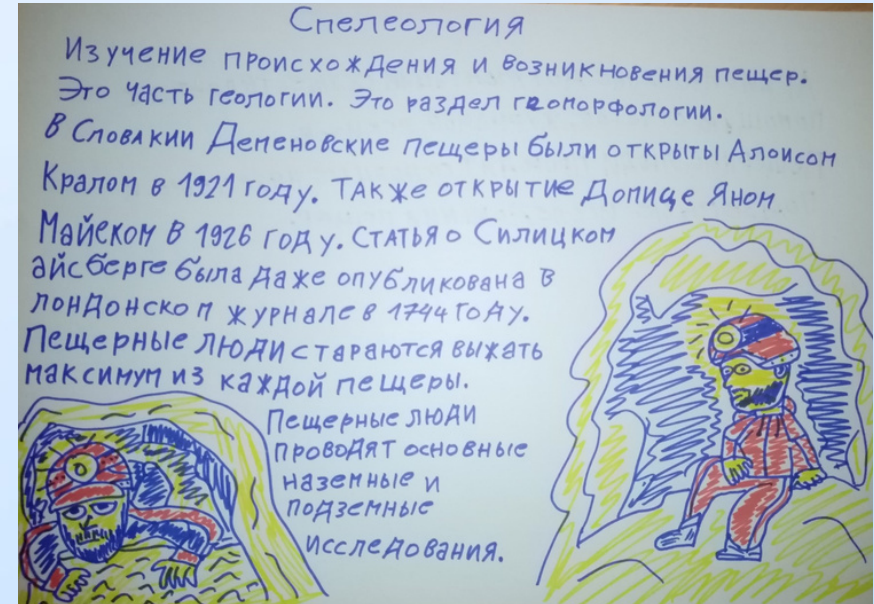 Спелеология
Изучение происхождения и возникновения пещер.
Это часть геологии. Это раздел геоморфологии.
В Словакии Деменовские пещеры были открыты Алоисом
Кралом в 1921 году. Также открытие Допице Яном
Майеком в 1926 году. Статья о Силицком
айсберге была даже опубликована в
лондонском журнале в 1744 году.
Пещерные люди стараются выжать
максимум из каждой пещеры.
Пещерные люди
проводят основные
наземные и
подземные
исследования.